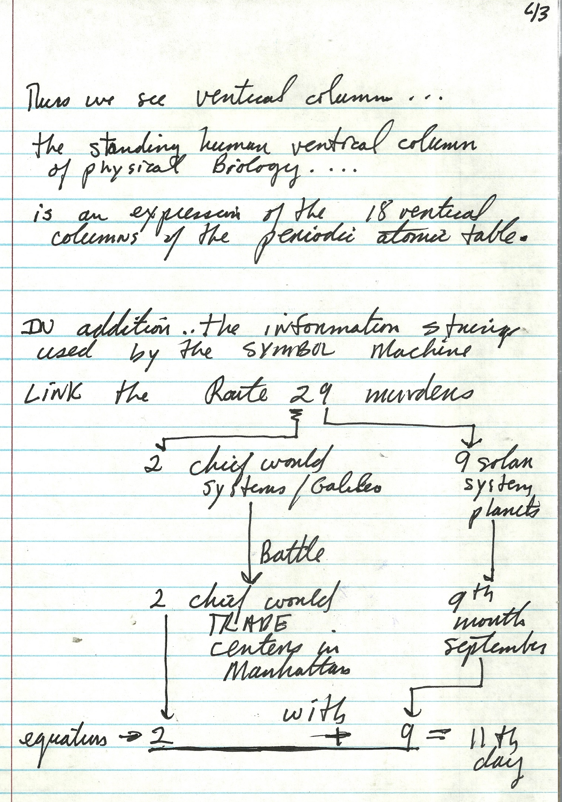 4/3
Thus we see vertical column ...
the standing human vertical column
of physical Biology....
is an expression of the 18 vertical
columns of the periodic atomic table.
IN addition..the information strings
used by the SYMBOL Machine
LINK the Route 29 murders
2 chief world 9 solar
systems/Galileo system
planets
Battle
2 chief world 9th
TRADE month
centers in september
Manhattan
with
equation → 2 + 9 = 11th
day